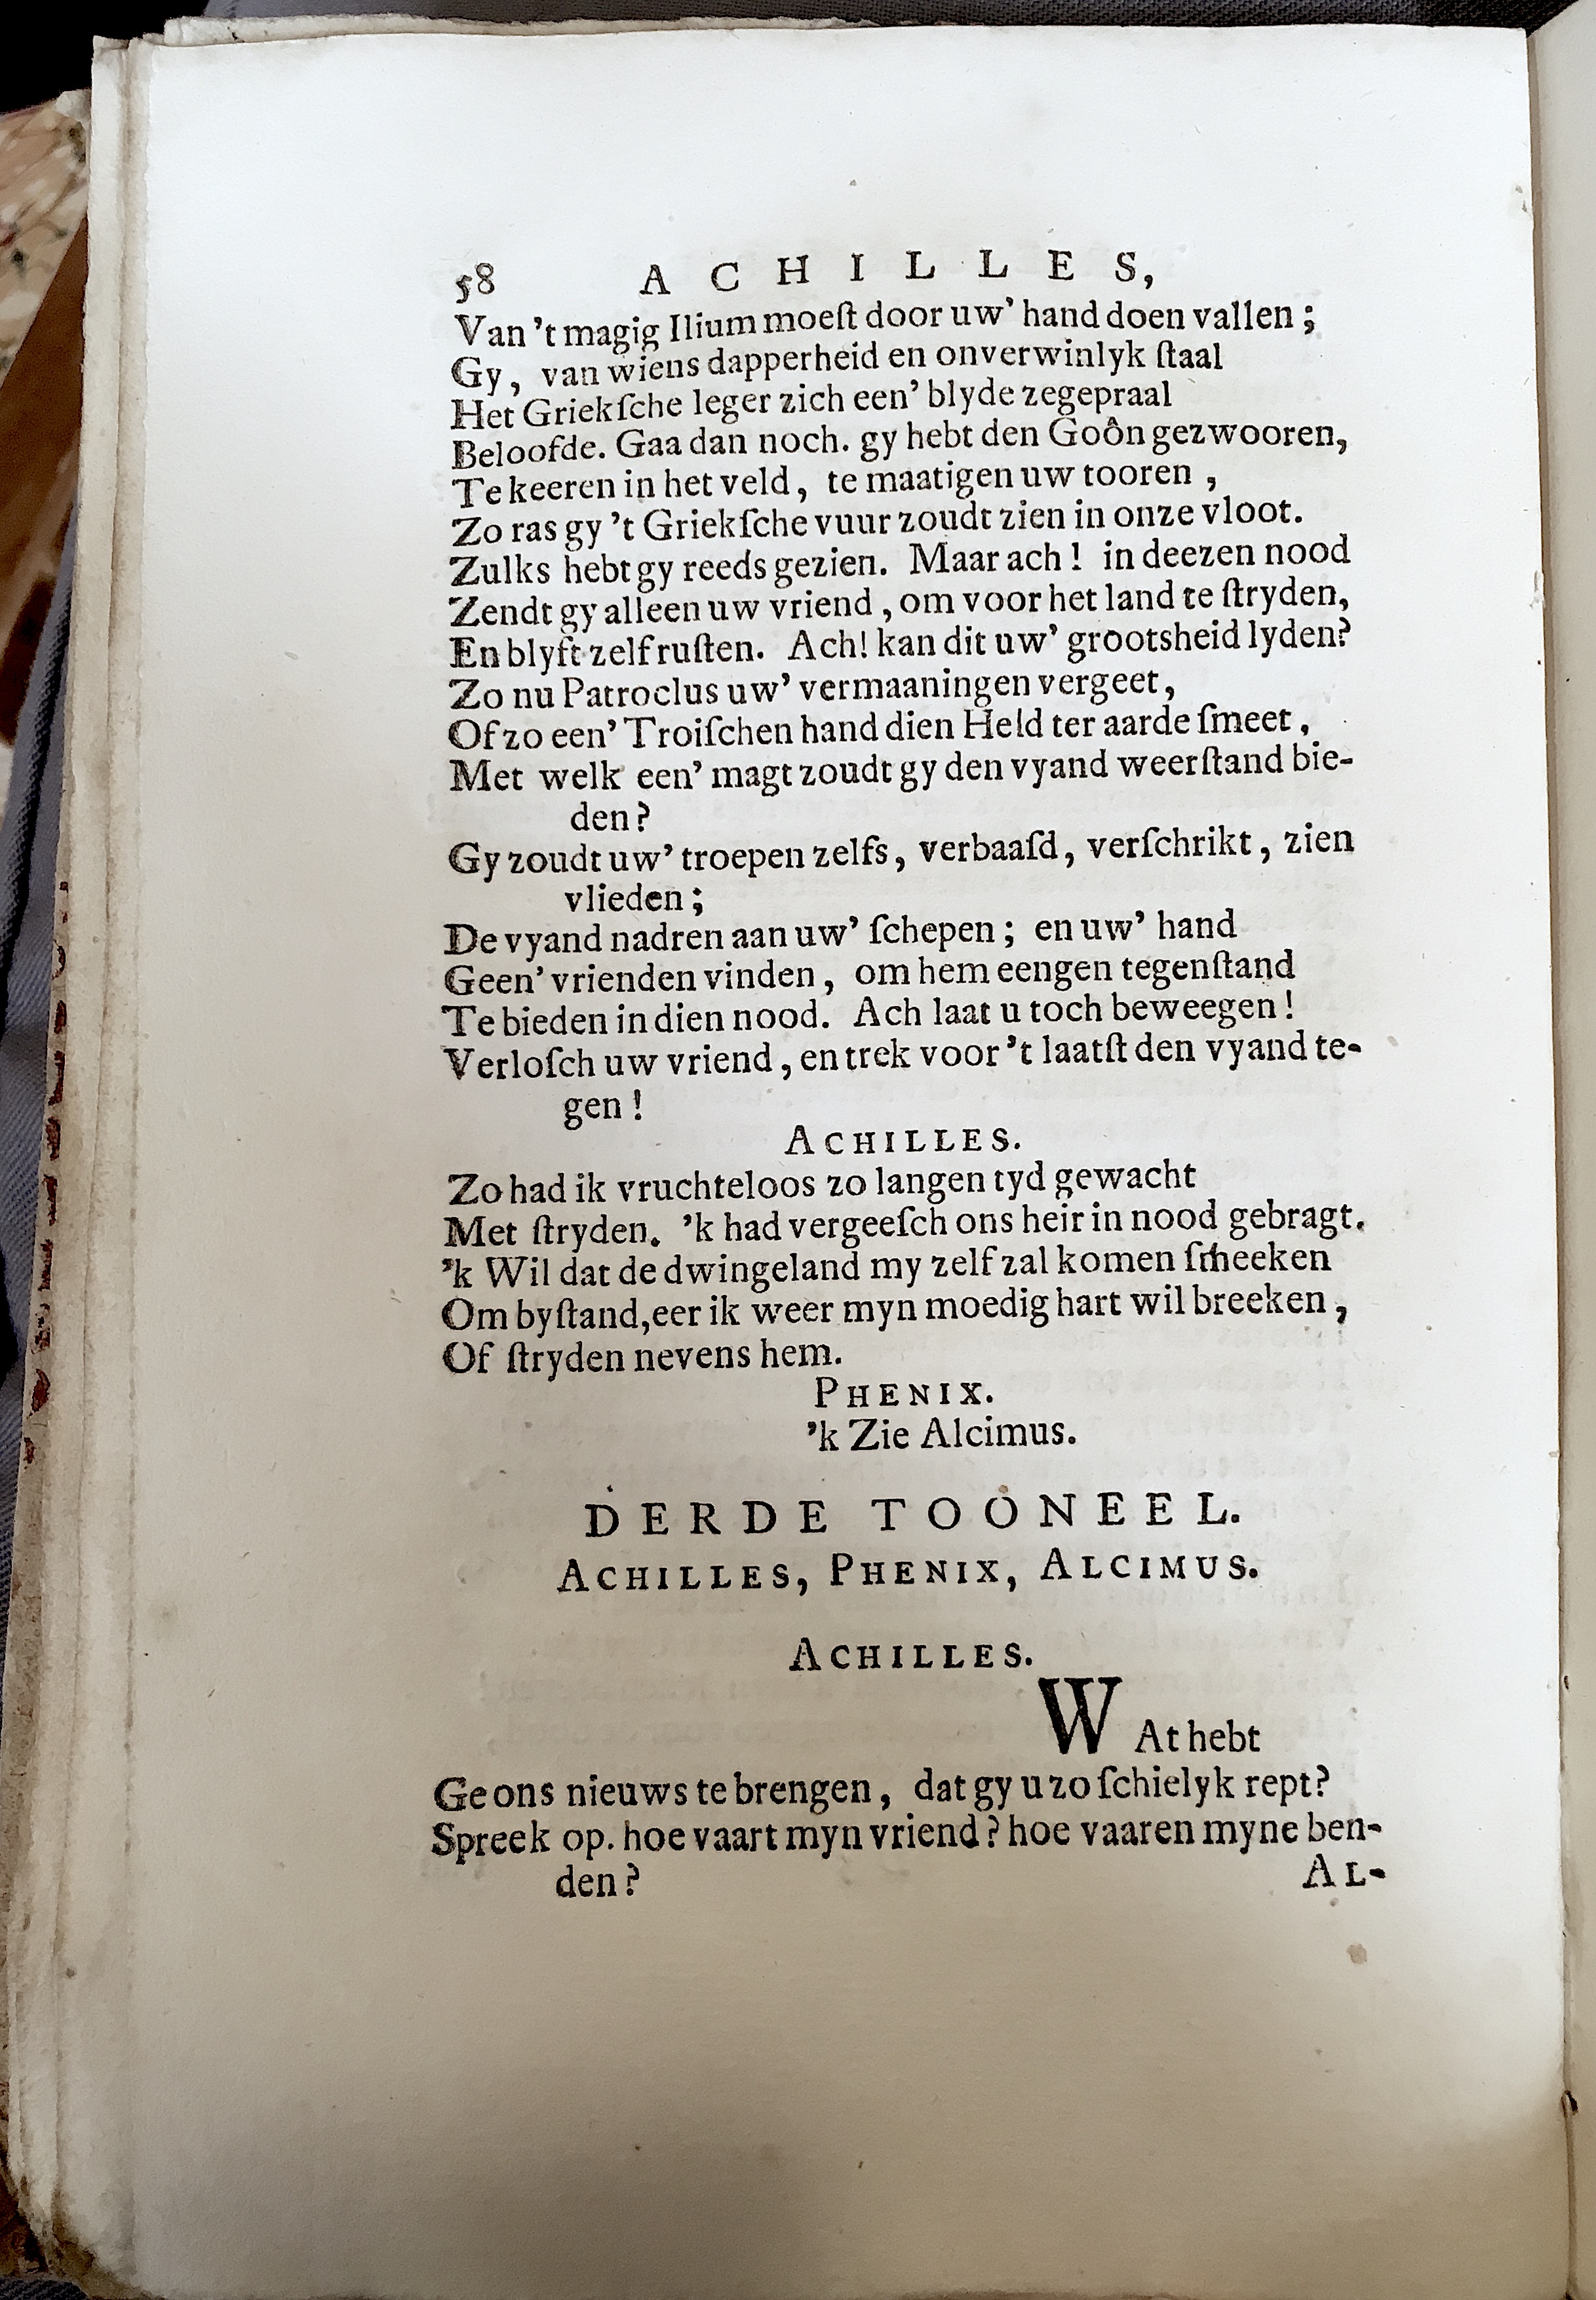 58 ACHILLES,
Van 't magig Ilium moeſt door uw' hand doen vallen;
Gy, van wiens dapperheid en onverwinlyk ſtaal
Het Griekſche leger zich een' blyde zegepraal
Beloofde. Gaa dan noch. gy hebt den Goôn gezwooren,
Te keeren in het veld, te maatigen uw tooren,
Zo ras gy 't Griekſche vuur zoudt zien in onze vloot.
Zulks hebt gy reeds gezien. Maar ach! in deezen nood
Zendt gy alleen uw vriend, om voor het land te ſtryden,
En blyft zelf ruſten. Ach! kan dit uw' grootsheid lyden?
Zo nu Patroclus uw' vermaaningen vergeet,
Of zo een' Troiſchen hand dien Held ter aarde ſmeet,
Met welk een' magt zoudt gy den vyand weerſtand bie-
den?
Gy zoudt uw' troepen zelfs, verbaaſd, verſchrikt, zien
vlieden;
De vyand nadren aan uw' ſchepen; en uw' hand
Geen' vrienden vinden, om hem eengen tegenſtand
Te bieden in dien nood. Ach laat u toch beweegen!
Verloſch uw vriend, en trek voor 't laatſt den vyand te-
gen!
ACHILLES.
Zo had ik vruchteloos zo langen tyd gewacht
Met ſtryden. 'k had vergeefſch ons heir in nood gebragt.
'k Wil dat de dwingeland my zelf zal komen ſmeeken
Om byſtand, eer ik weer myn moedig hart wil breeken,
Of ſtryden nevens hem.
PHENIX.
'k Zie Alcimus.
DERDE TOONEEL.
ACHILLES, PHENIX, ALCIMUS.
ACHILLES.
WAt hebt
Ge ons nieuws te brengen, dat gy u zo ſchielyk rept?
Spreek op. hoe vaart myn vriend? hoe vaaren myne ben-
den? AL-